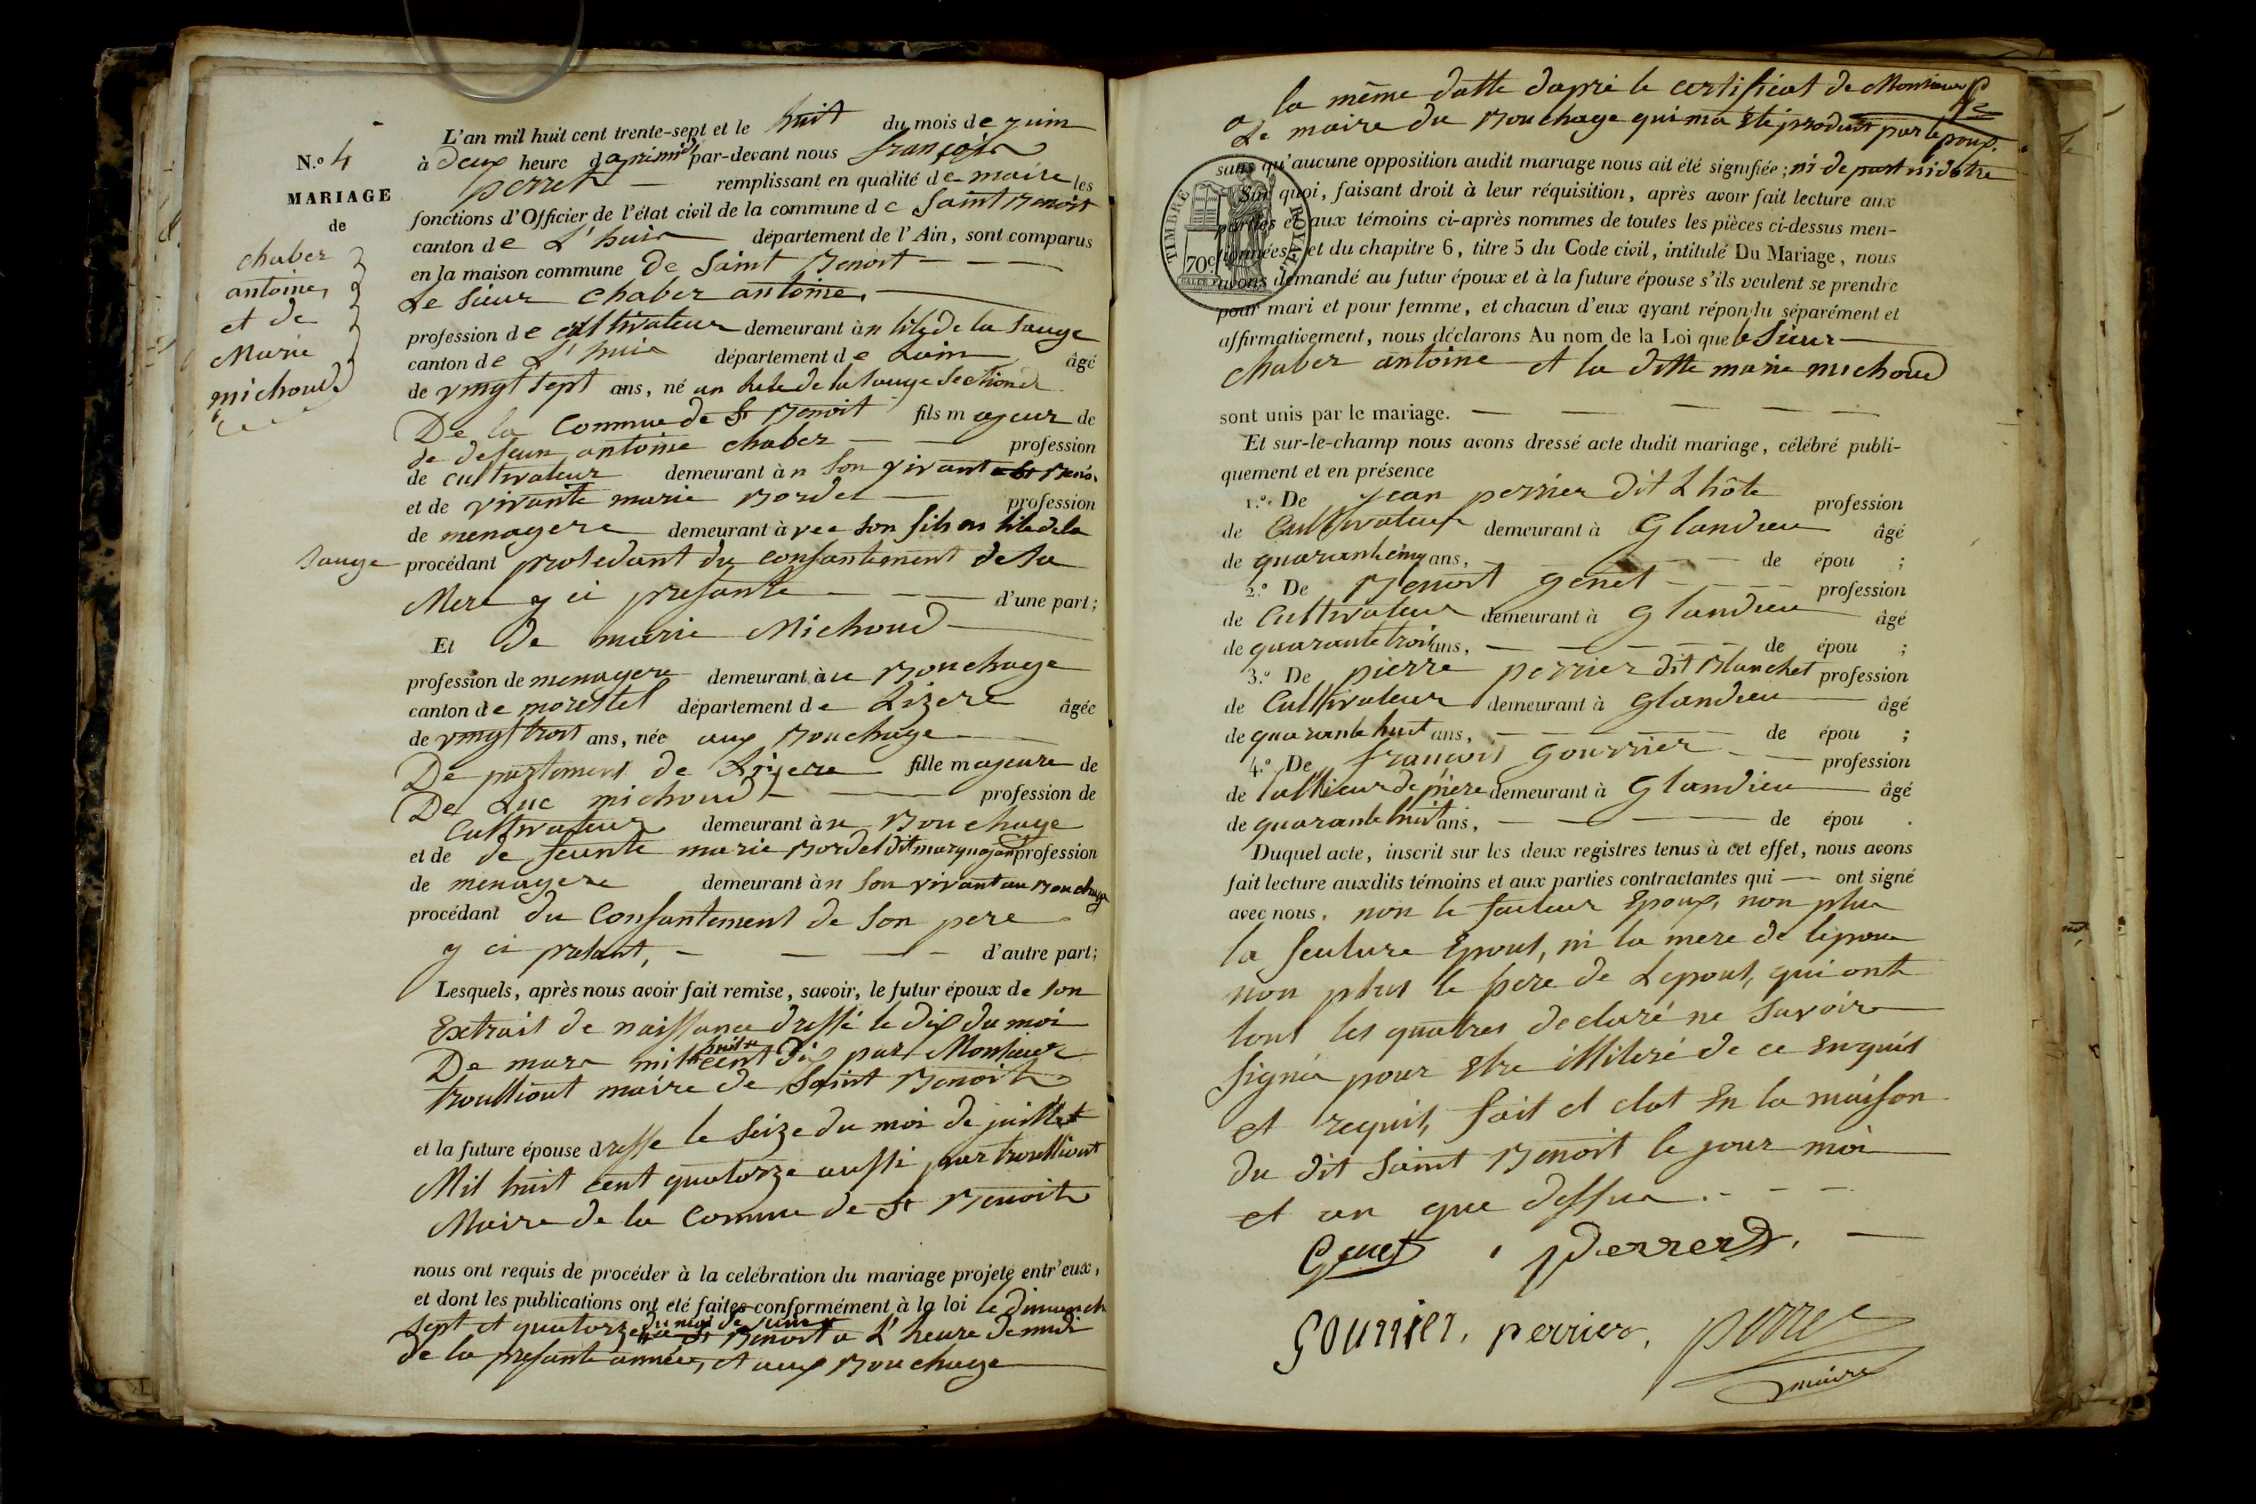 N.º 4
MARIAGE
de
chaber
antoine,
et de
Marie
michoud
L'an mil huit cent trente-sept et le huit du mois de juin
à deux heure daprimidi par-devant nous françois
perret remplissant en qualité de maire les
fonctions d'Officier de l'état civil de la commune de Saint Benoit
canton de L'huis département de l'Ain, sont comparus
en la maison commune de Saint Benoit
Le Sieur chaber antoine,
profession de cultivateur demeurant àn lile de la Sauge
canton de L'huis département de Lain âgé
de vingt sept ans, né an lile de la Sauge Section de
De la Commune de St Benoit fils majeur de
de defeun antoine chaber profession
de cultivateur demeurant àn Son vivant a St Benoi
et de vivante marie Bordel profession
de menagere demeurant àvec Son fils en lile de la
Sauge procédant proledant du consantement de Sa
Mere y ci presante d'une part;
Et De marie Michoud
profession de menagere demeurant àu Bouchage
canton de morestel département de Lizere âgée
de vingt trois ans, née aux Bouchage
De partement de Lizere fille majeure de
De Luc michoud profession de
Cultivateur demeurant àu Bouchage
et de de feunte marie Bordel dit profession
de menagere demeurant àn Son vivant au Bouchage
procédant du Consantement de Son pere
y ci presant, d'autre part;
Lesquels, après nous avoir fait remise, savoir, le futur époux de Son
Extrait de naissance dressé le dix du moi
De mars mil huit cent dix par Monsieur
trouilliout maire de Saint Benoit
et la future épouse dresse le Seize du moi de juillet
Mil huit cent quatorze aussi par trouilliout
Maire de la Commune de St Benoit
nous ont requis de procéder à la celébration du mariage projeté entr'eux,
et dont les publications ont été faites conformément à la loi le dimanch
Sept et quatorze du moi de Benoit a L'heure de midi
de la presante année, et aux Bouchage
a la même datte daprè le certificat de Monsieur
Le maire du Bouchage qui ma été produit par lepoux.
sans qu'aucune opposition audit mariage nous ait été signifiée; ni de part ni dotre
Sur quoi, faisant droit à leur réquisition, après avoir fait lecture aux
parties et aux témoins ci-après nommes de toutes les pièces ci-dessus men-
tionnées, et du chapitre 6, titre 5 du Code civil, intitulé Du Mariage, nous
avons demandé au futur époux et à la future épouse s'ils veulent se prendre
pour mari et pour femme, et chacun d'eux ayant répondu séparément et
affirmativement, nous déclarons Au nom de la Loi que le Sieur
chaber antoine et la ditte marie michoud
sont unis par le mariage.
Et sur-le-champ nous avons dressé acte dudit mariage, célébré publi-
quement et en présence
1.º De jean perrier dit Lhôte profession
de Cultivateur demeurant à Glandieu âgé
de quarante cinq ans, de épou ;
2.º De Benoit genet profession
de Cultivateur demeurant à glandieu âgé
de quarante trois ans, de épou ;
3.º De pierre perrier dit Blanchet profession
de Cultivateur demeurant à glandieu âgé
de quarante huit ans, de épou ;
4.º De françois gourrier profession
de tallieur de piere demeurant à Glandieu âgé
de quarante huit ans, de épou .
Duquel acte, inscrit sur les deux registres tenus à cet effet, nous avons
fait lecture auxdits témoins et aux parties contractantes qui ont signé
avec nous, non le feuteur Epoux, non plus
la feuture Epous, ni la mere de lepoux
non plus le pere de Lepous, qui ont
tous les quatres declaré ne Savoir
Signer pour Etre illiteré de ce enquis
et requis, fait et clot En la maison
du dit Saint Benoit le jour moi
et an que dessus.
Genet perrer
gourrier, perrier, perret
maire
TIMBRE ROYAL
70c